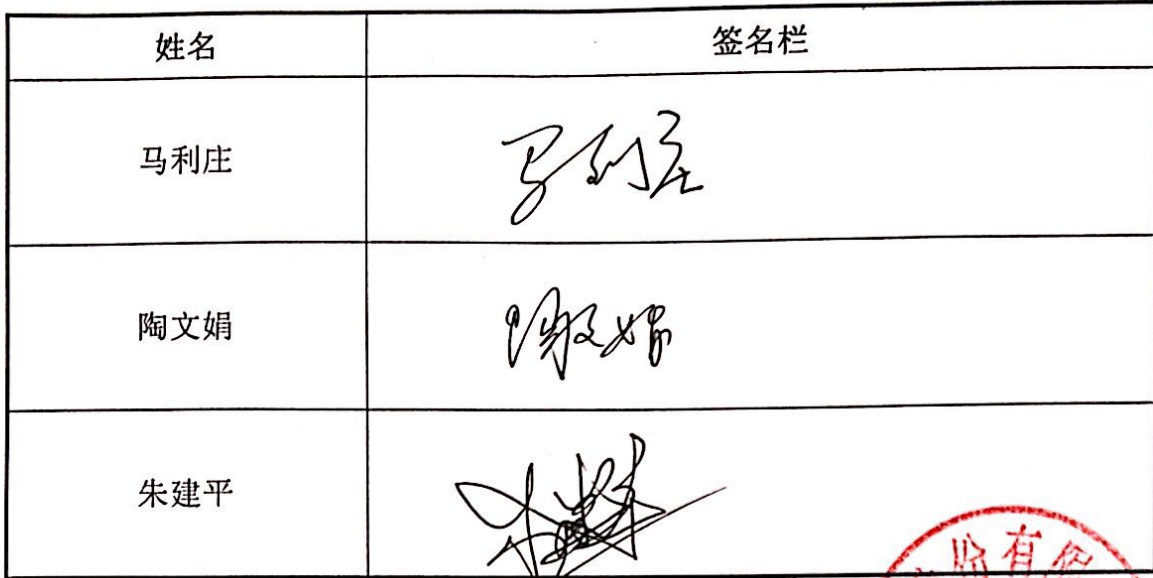 姓名 签名栏
马利庄 马利庄
陶文娟 陶文娟
朱建平
份有限